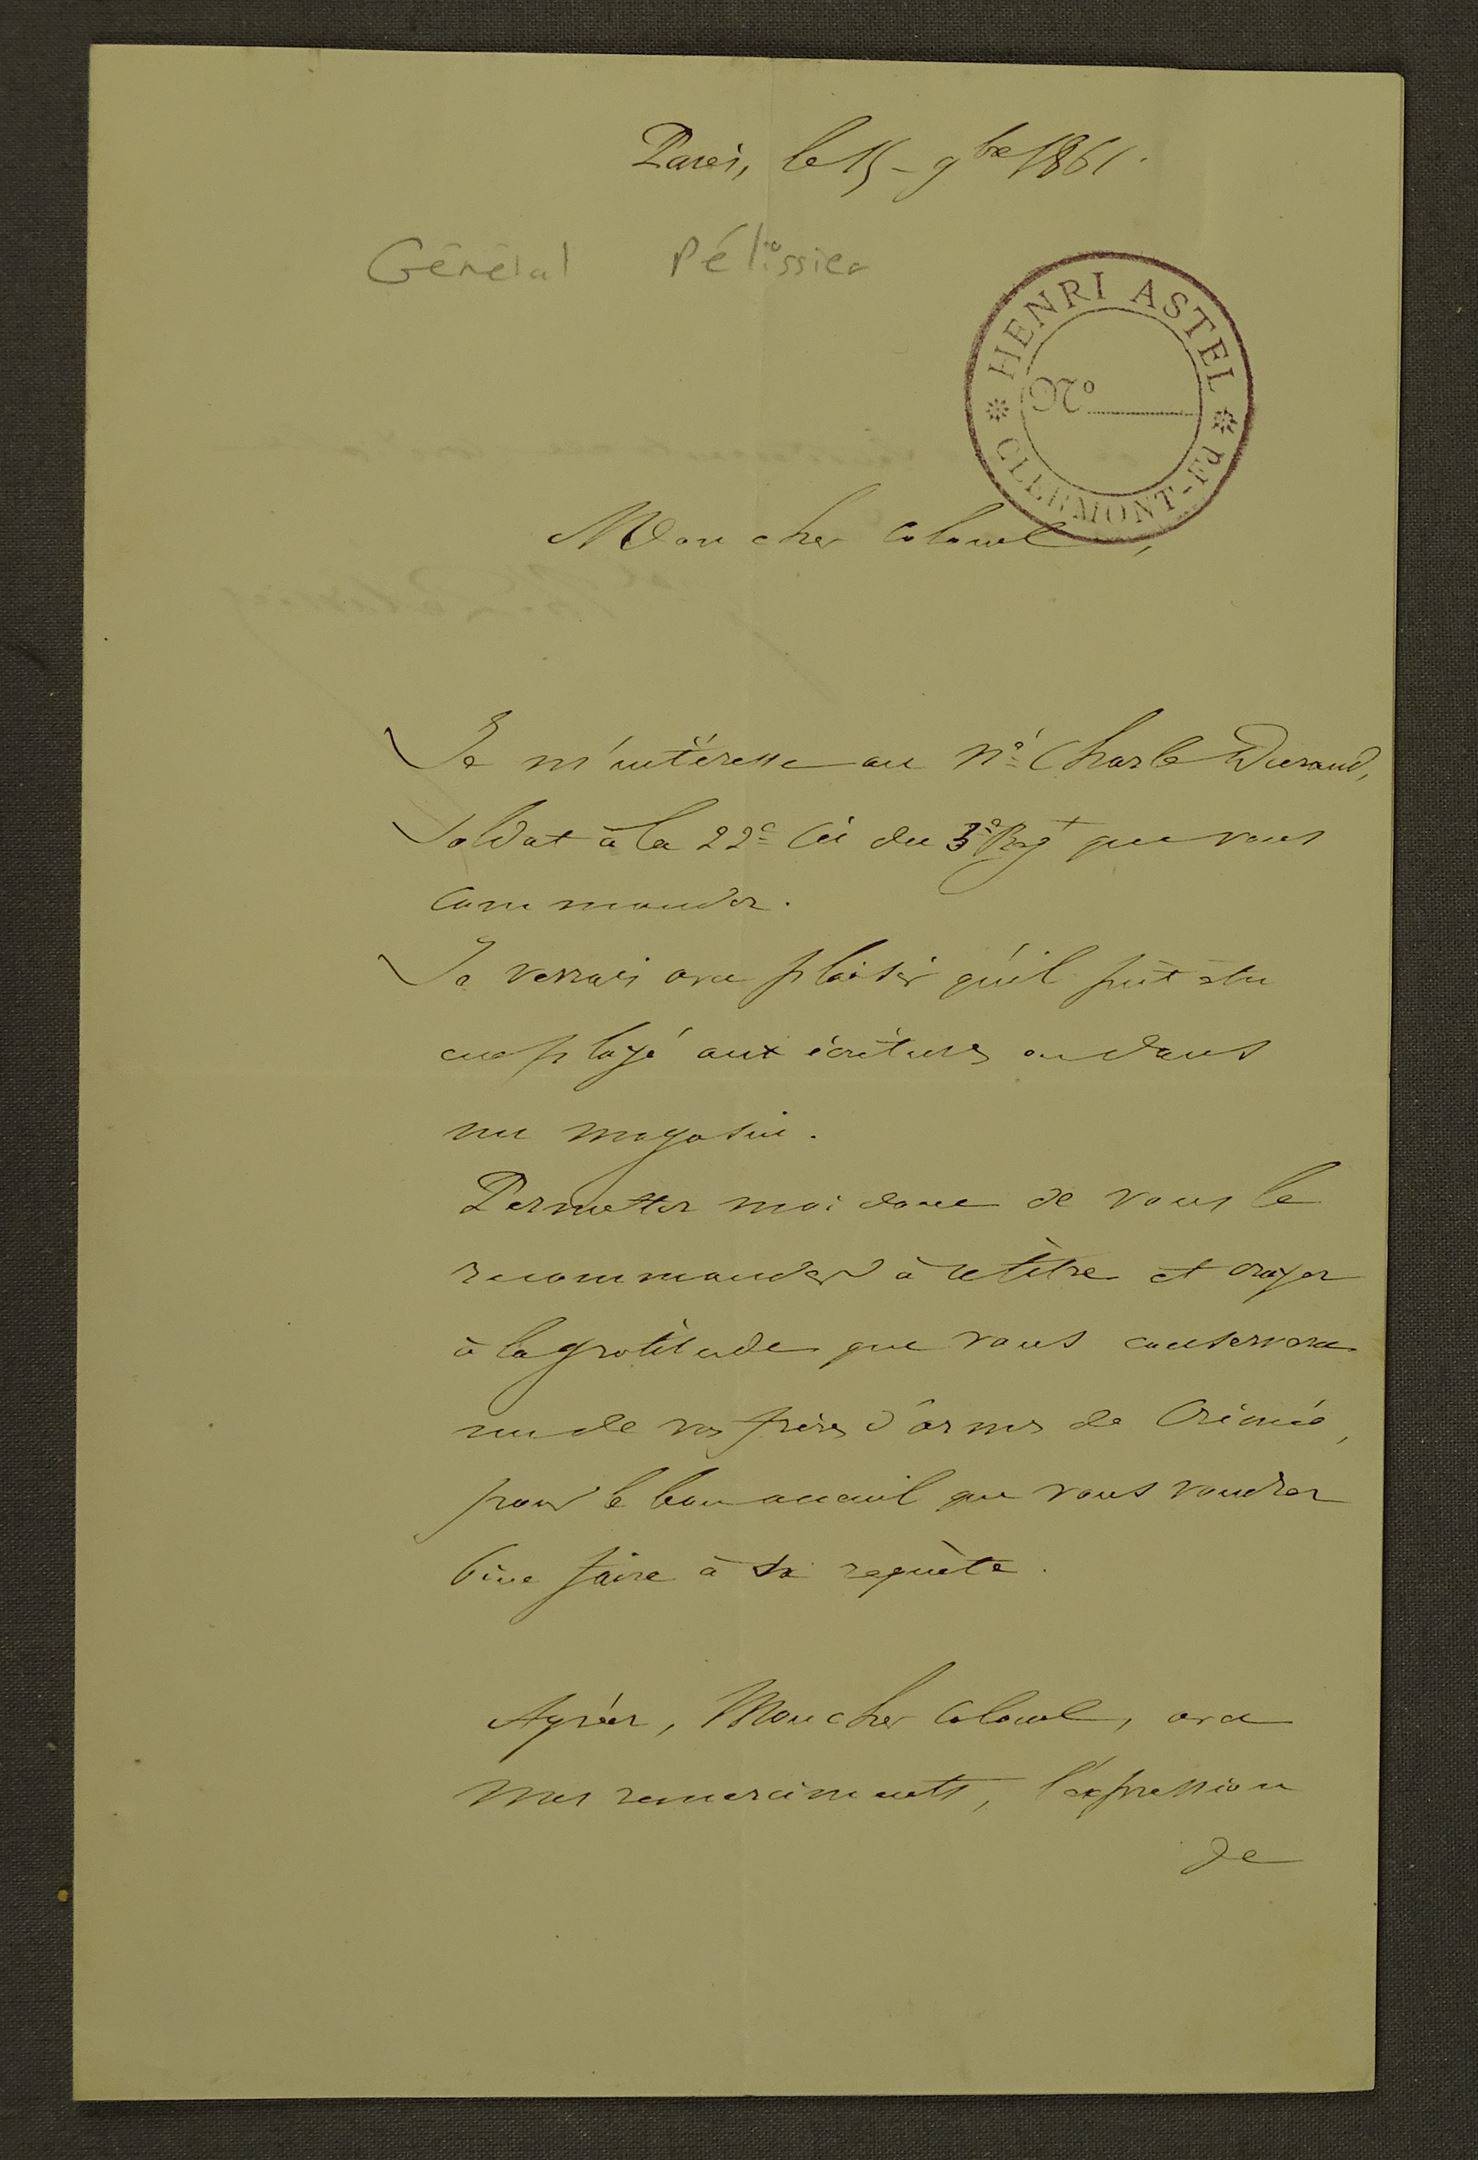 Paris, le 15 - 9bre 1861.
Général Pélissier
HENRI ASTEL
No
CLERMONT-Fd
Mon cher Colonel,
Je m'intéresse au Né Charles Durand,
Soldat à la 22e Cie du 3e Rgt que vous
commandez.
Je verrais avec plaisir qu'il put être
employé aux écritures ou dans
un magasin.
Permettez moi donc de vous le
recommander à ce titre et croyez
à la gratitude que vous conservera
un de vos frères d'armes de Crimée,
pour le bon accueil que vous voudrez
bien faire à sa requète.
Agréez, Mon cher Colonel, avec
mes remerciments, l'expression
de